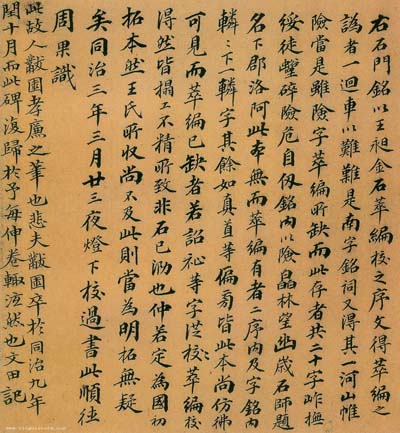 右石門銘以王昶金石萃編校之序文得萃編之
譌者一迴車以難難是南字銘詞又得其一河山惟
險當是雖險字萃編所缺而此存者共二十字岞撫
綏徒蠥碎險危自銘內以險皛林望幽歲石師題
名下郡洛阿此本無而萃編有者二序內及字銘內
轔〻下一轔字其餘如真直等偏旁皆此本尚仿佛
可見而萃編已缺者若詔等字洪校萃編校
得然皆搨工不精所致非石已泐也仲若定為國初
拓本然王氏所收尚不及此則當為明拓無疑
矣同治三年三月廿三夜燈下校過書此順德
周果識
此故人翫園孝廉之筆也悲夫翫園卒於同治九年
閏十月而此碑復歸於予每伸卷輒泫然也文田記